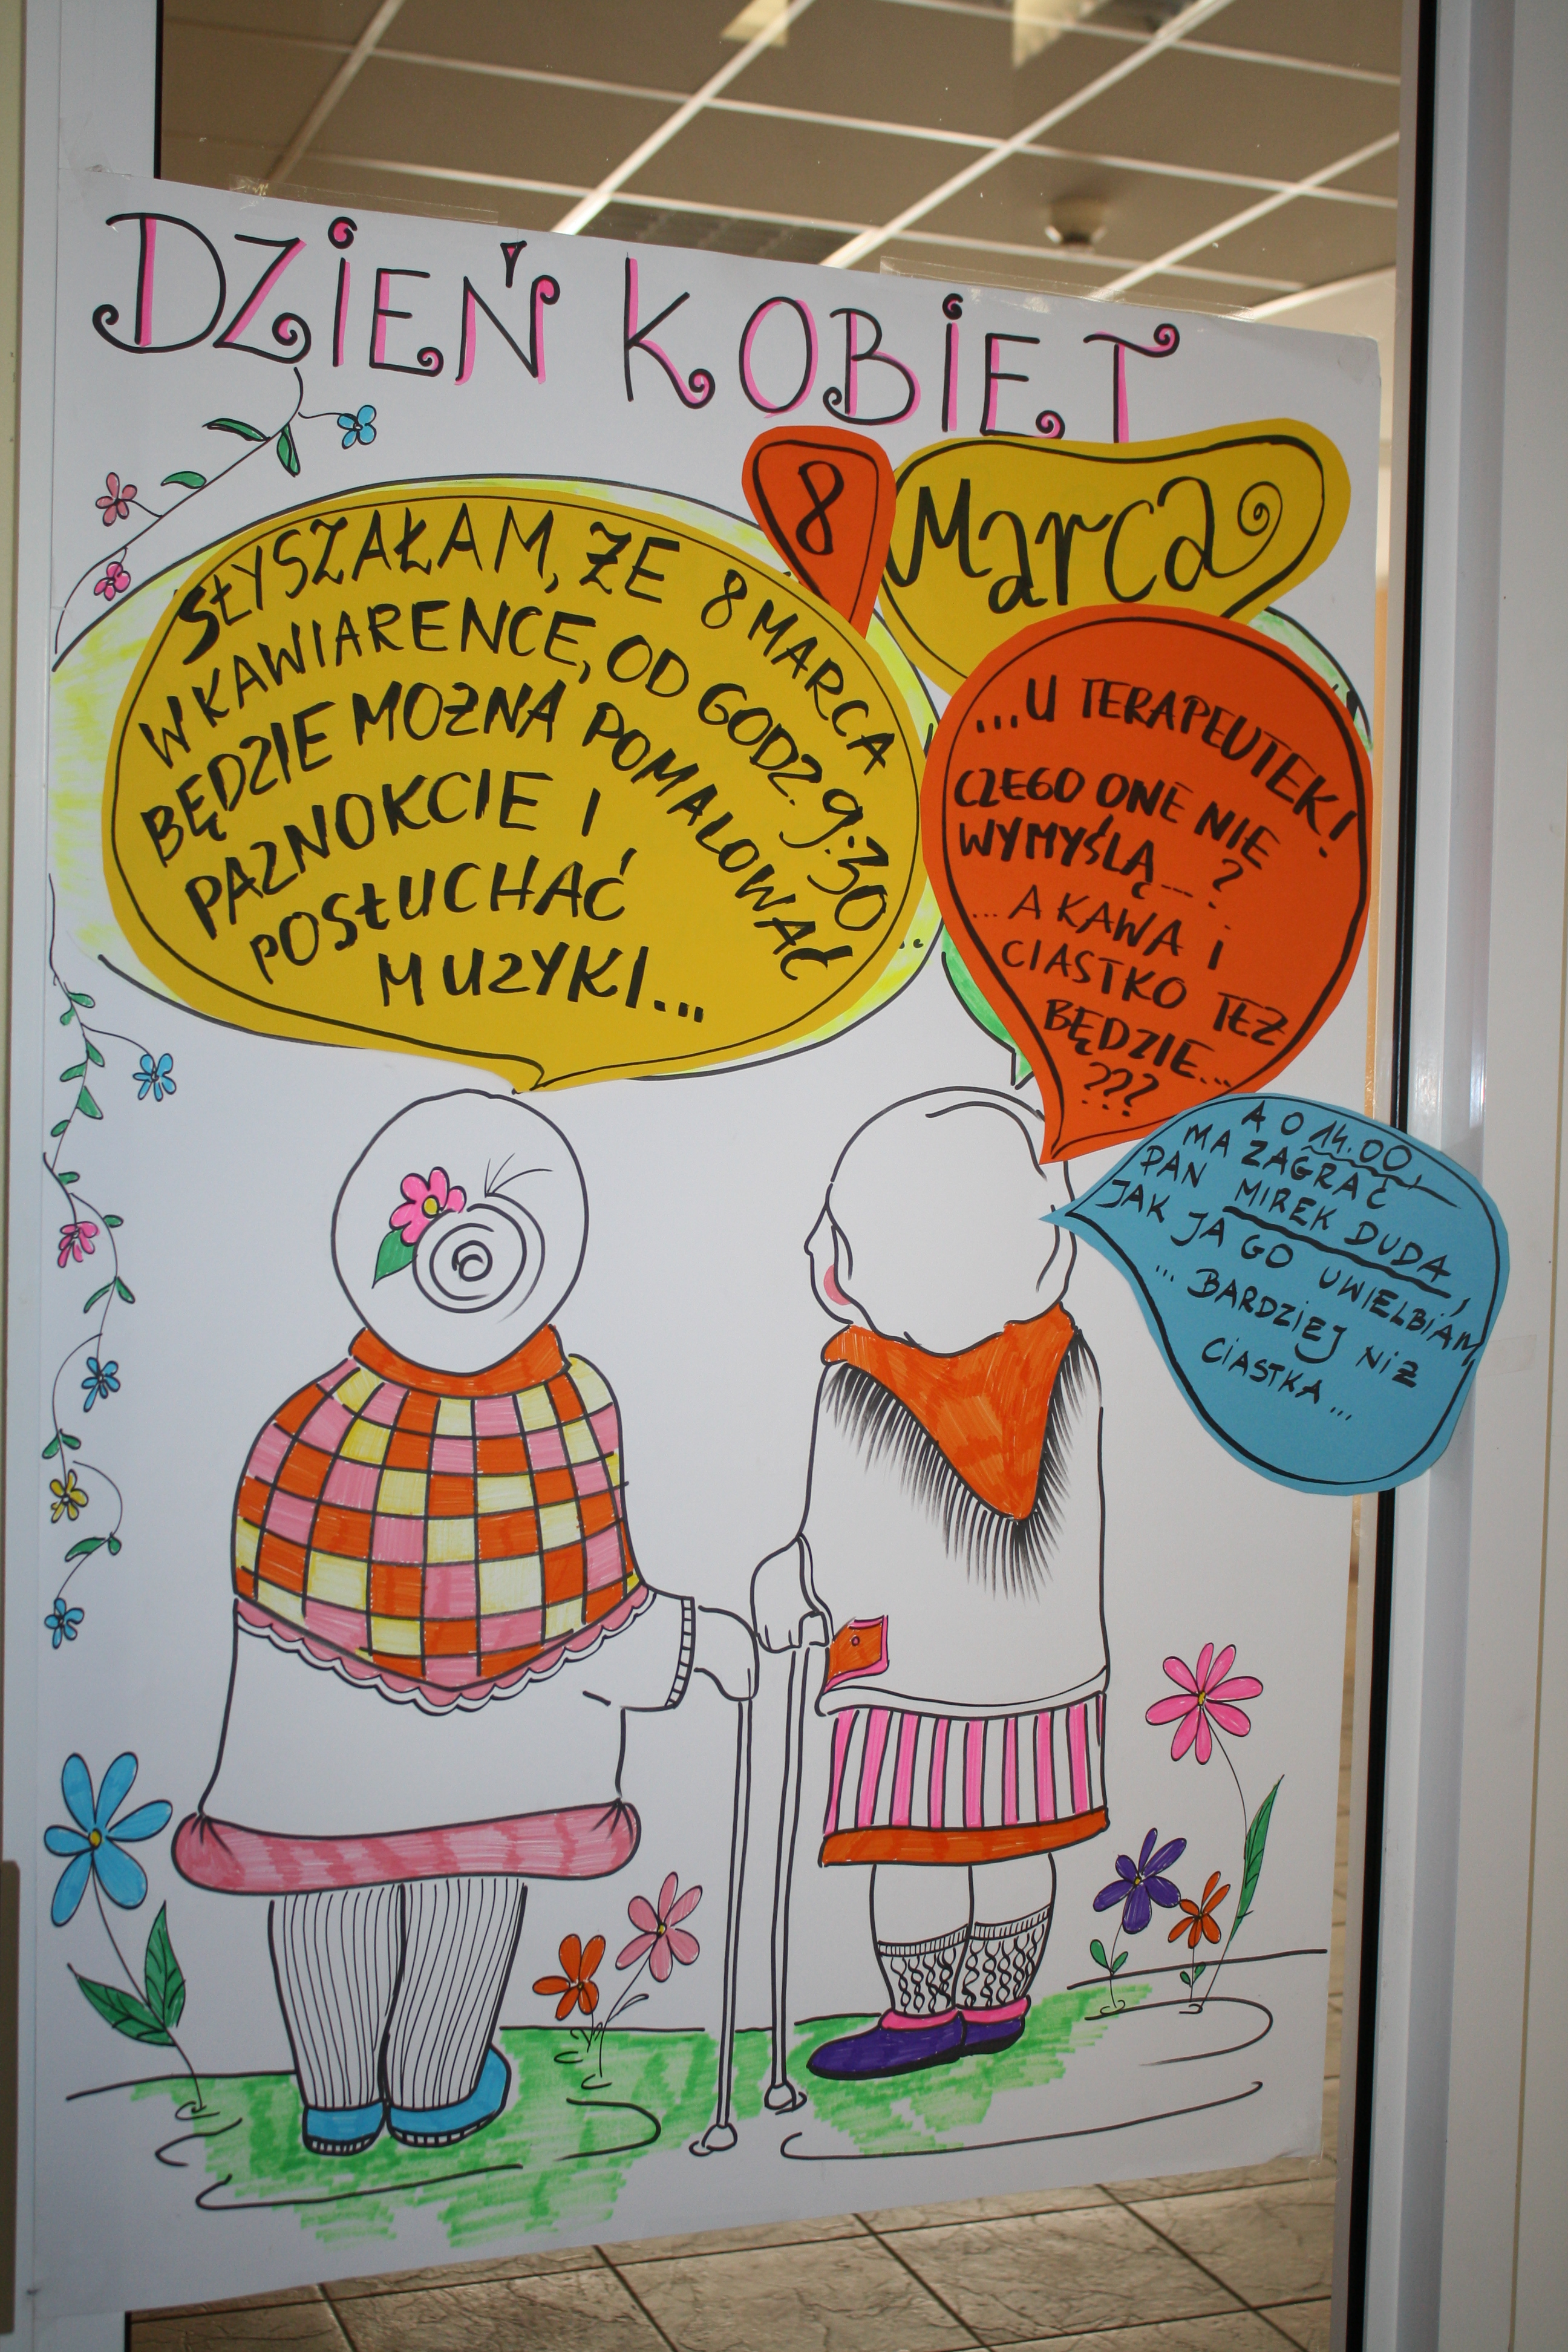 DZIEŃ KOBIET
8
Marca
SŁYSZAŁAM, ŻE 8 MARCA
W KAWIARENCE, OD GODZ. 9:30
BĘDZIE MOŻNA POMALOWAĆ
PAZNOKCIE I
POSŁUCHAĆ
MUZYKI...
...U TERAPEUTEK!
CZEGO ONE NIE
WYMYŚLĄ...?
...A KAWA i
CIASTKO TEŻ
BĘDZIE...
???
A O 14.00,
MA ZAGRAĆ
PAN MIREK DUDA,
JAK JA GO UWIELBIAM
... BARDZIEJ NIŻ
CIASTKA...